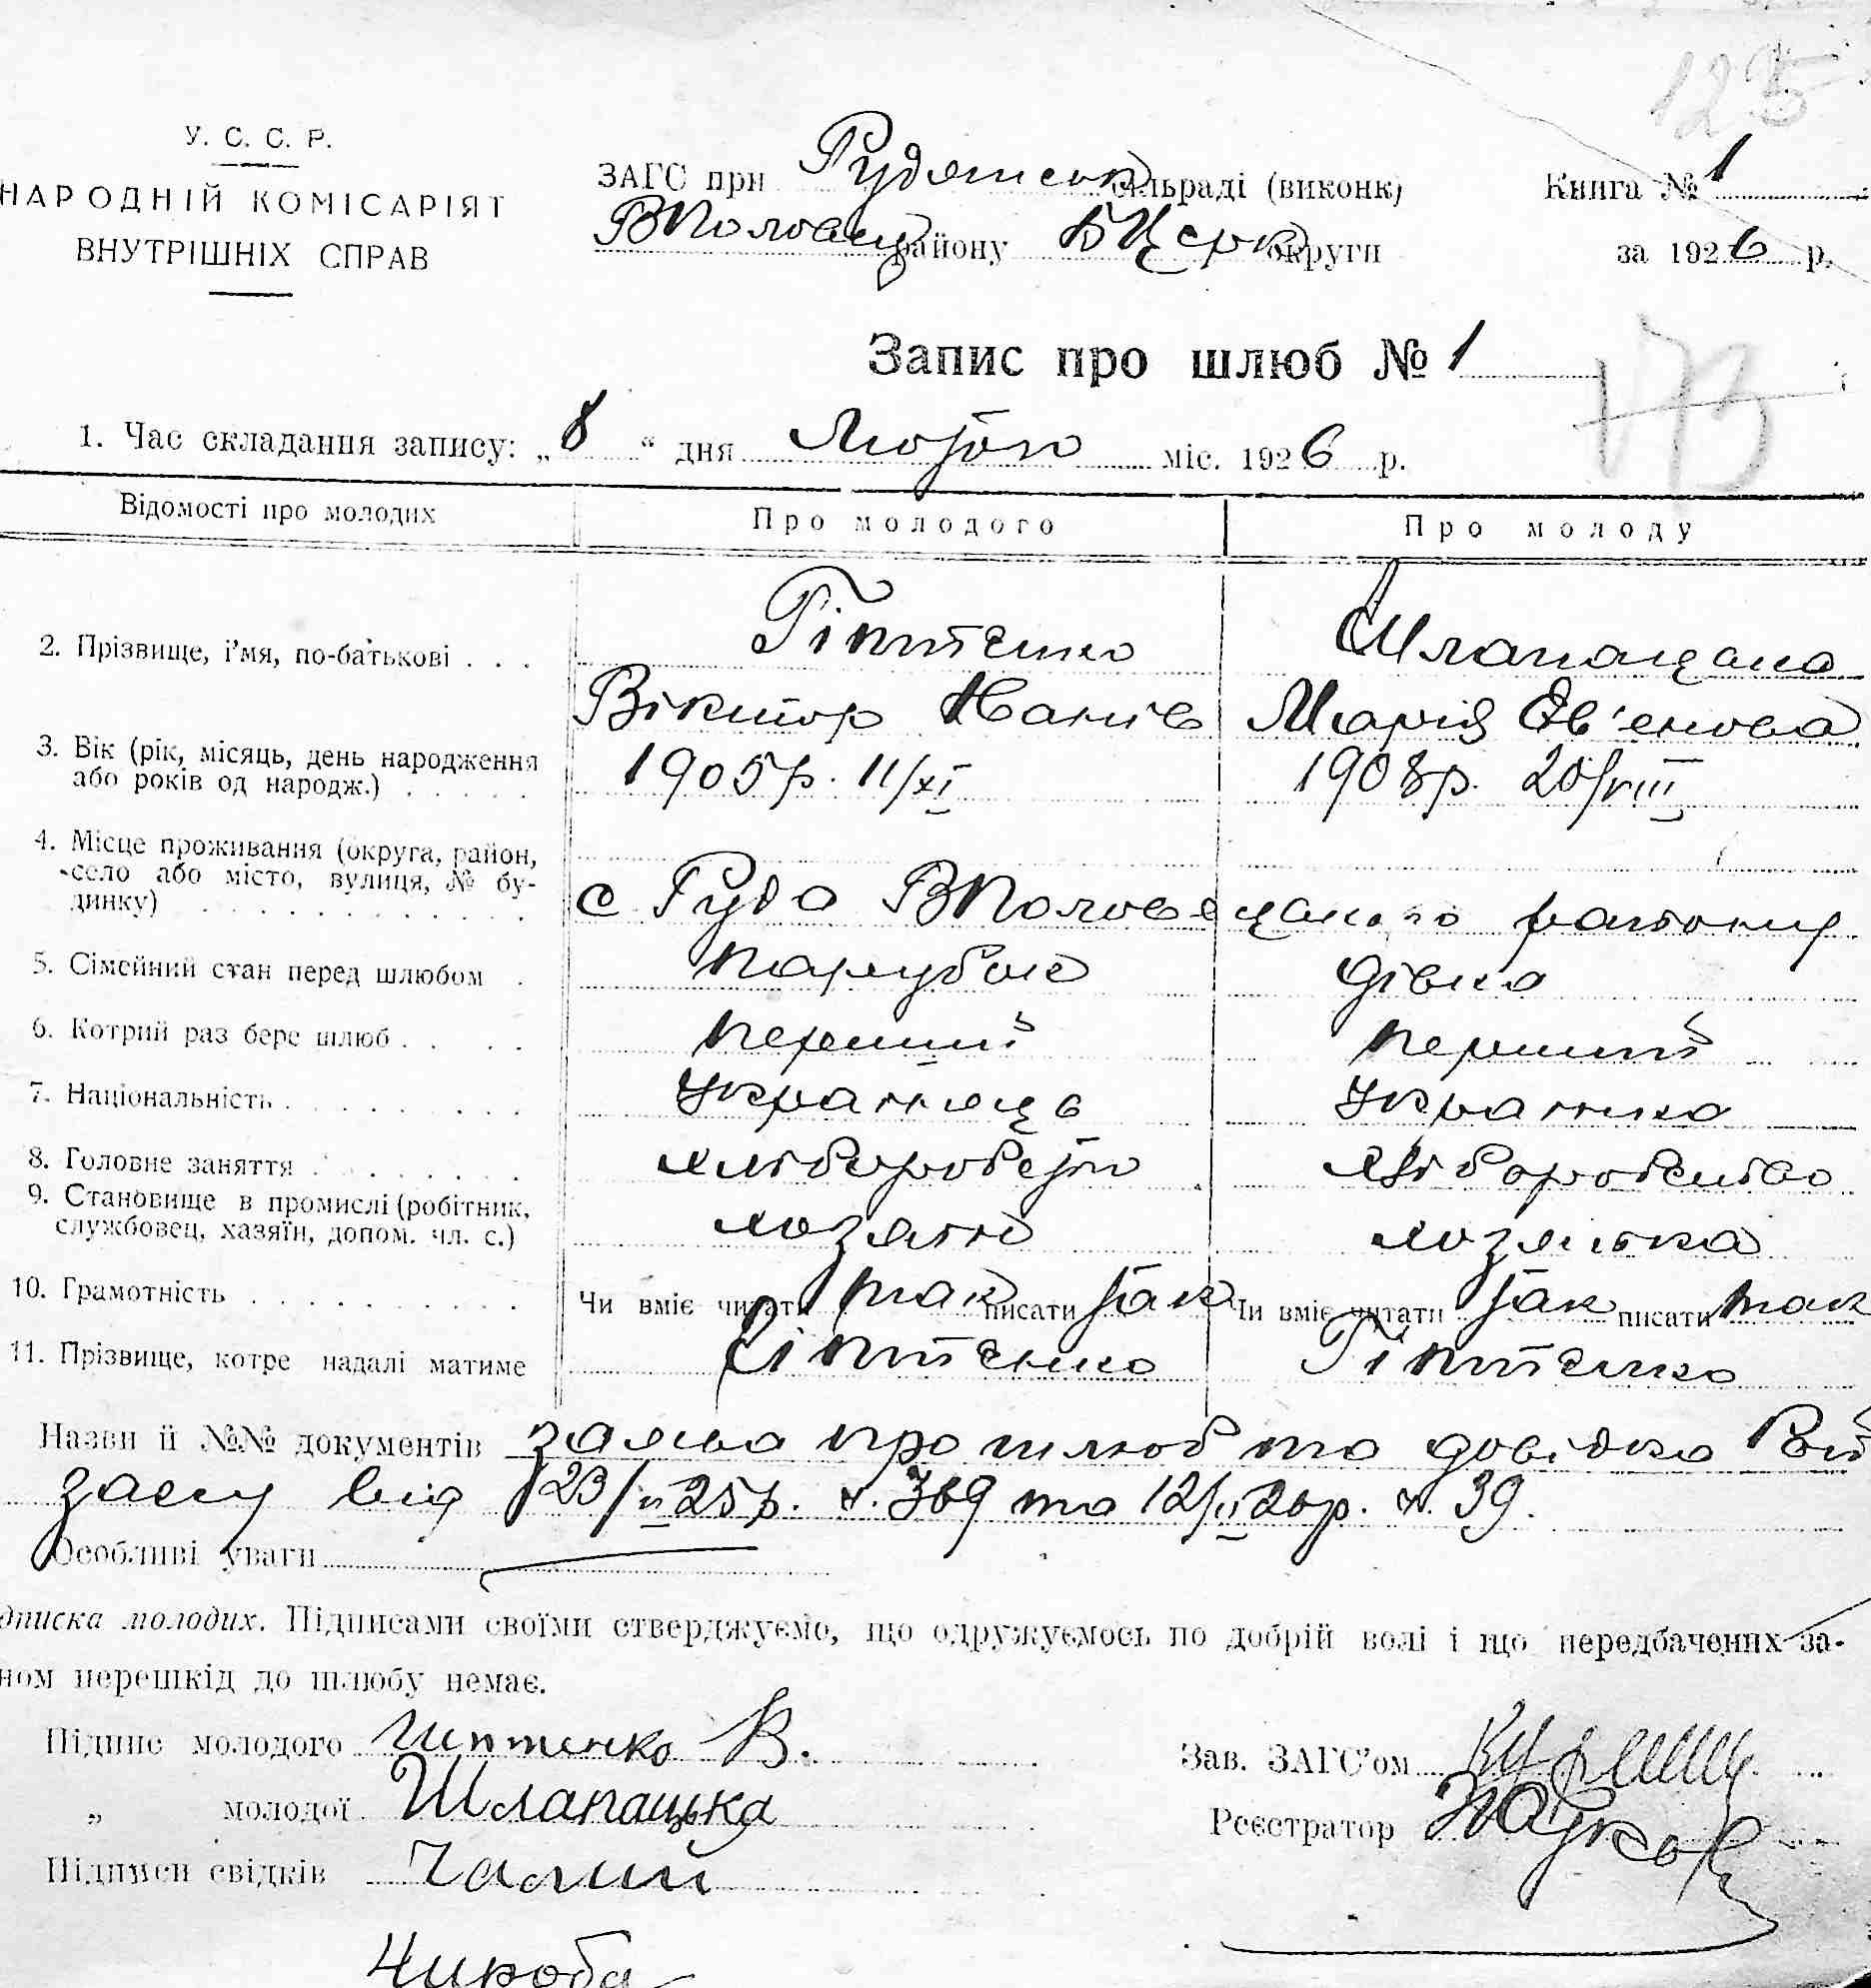 125
У. С. С. Р.
НАРОДНІЙ КОМІСАРІЯТ
ВНУТРІШНІХ СПРАВ
ЗАГС при Рудянськ сільраді (виконк)
ВПоловец району БЦерк округи
Книга № 1
за 1926 р.
Запис про шлюб № 1
173
1. Час складання запису: „8“ дня Лютого міс. 1926 р.
Відомості про молодих
Про молодого
Про молоду
2. Прізвище, і'мя, по-батькові . . .
Гіптенко
Шлапацька
Віктор Іванів
Марія Ов'янова
3. Вік (рік, місяць, день народження
або років од народж.) . . . . .
1905р. 11/XI
1908р. 20/VIII
4. Місце проживання (округа, район,
село або місто, вулиця, № бу-
динку) . . . . . . . . . . . .
с Руда ВПоловецького району
5. Сімейний стан перед шлюбом .
парубок
дівка
6. Котрий раз бере шлюб . . . .
перший
перший
7. Національність . . . . . . . . .
Українець
Українка
8. Головне заняття . . . . . . .
хліборобство
хліборобство
9. Становище в промислі (робітник,
службовец, хазяїн, допом. чл. с.)
хозяїн
хозяйка
10. Грамотність . . . . . . . . . .
Чи вміє читати так писати так
Чи вміє читати так писати так
11. Прізвище, котре надалі матиме
Гіптенко
Гіптенко
Назви й №№ документів заява про шлюб та довідка Рай
загсу від 23/II 25р. ч. 369 та 12/II 26р. ч. 39.
Особливі уваги
дписка молодих. Підписами своїми стверджуємо, що одружуємось по добрій волі і що передбачених за-
ном перешкід до шлюбу немає.
Підпис молодого Гиптенко В.
„ молодої Шлапацька
Підписи свідків Чалий
Чироба
Зав. ЗАГС'ом
Реєстратор